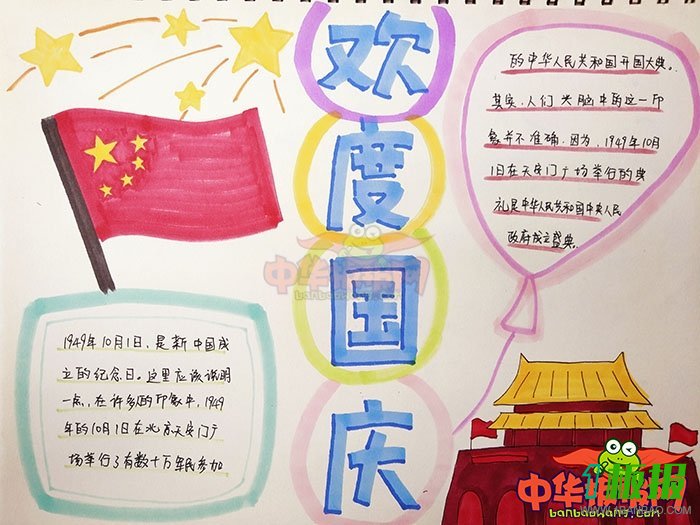 欢
度
国
庆
1949年10月1日,是新中国成
立的纪念日。这里应该说明
一点,在许多的印象中,1949
年的10月1日在北京天安门广
场举行了有数十万军民参加
的中华人民共和国开国大典。
其实,人们头脑中的这一印
象并不准确.因为,1949年10月
1日在天安门广场举行的典
礼是中华人民共和国中央人民
政府成立盛典.
banbaowang.com
banbaowang.com